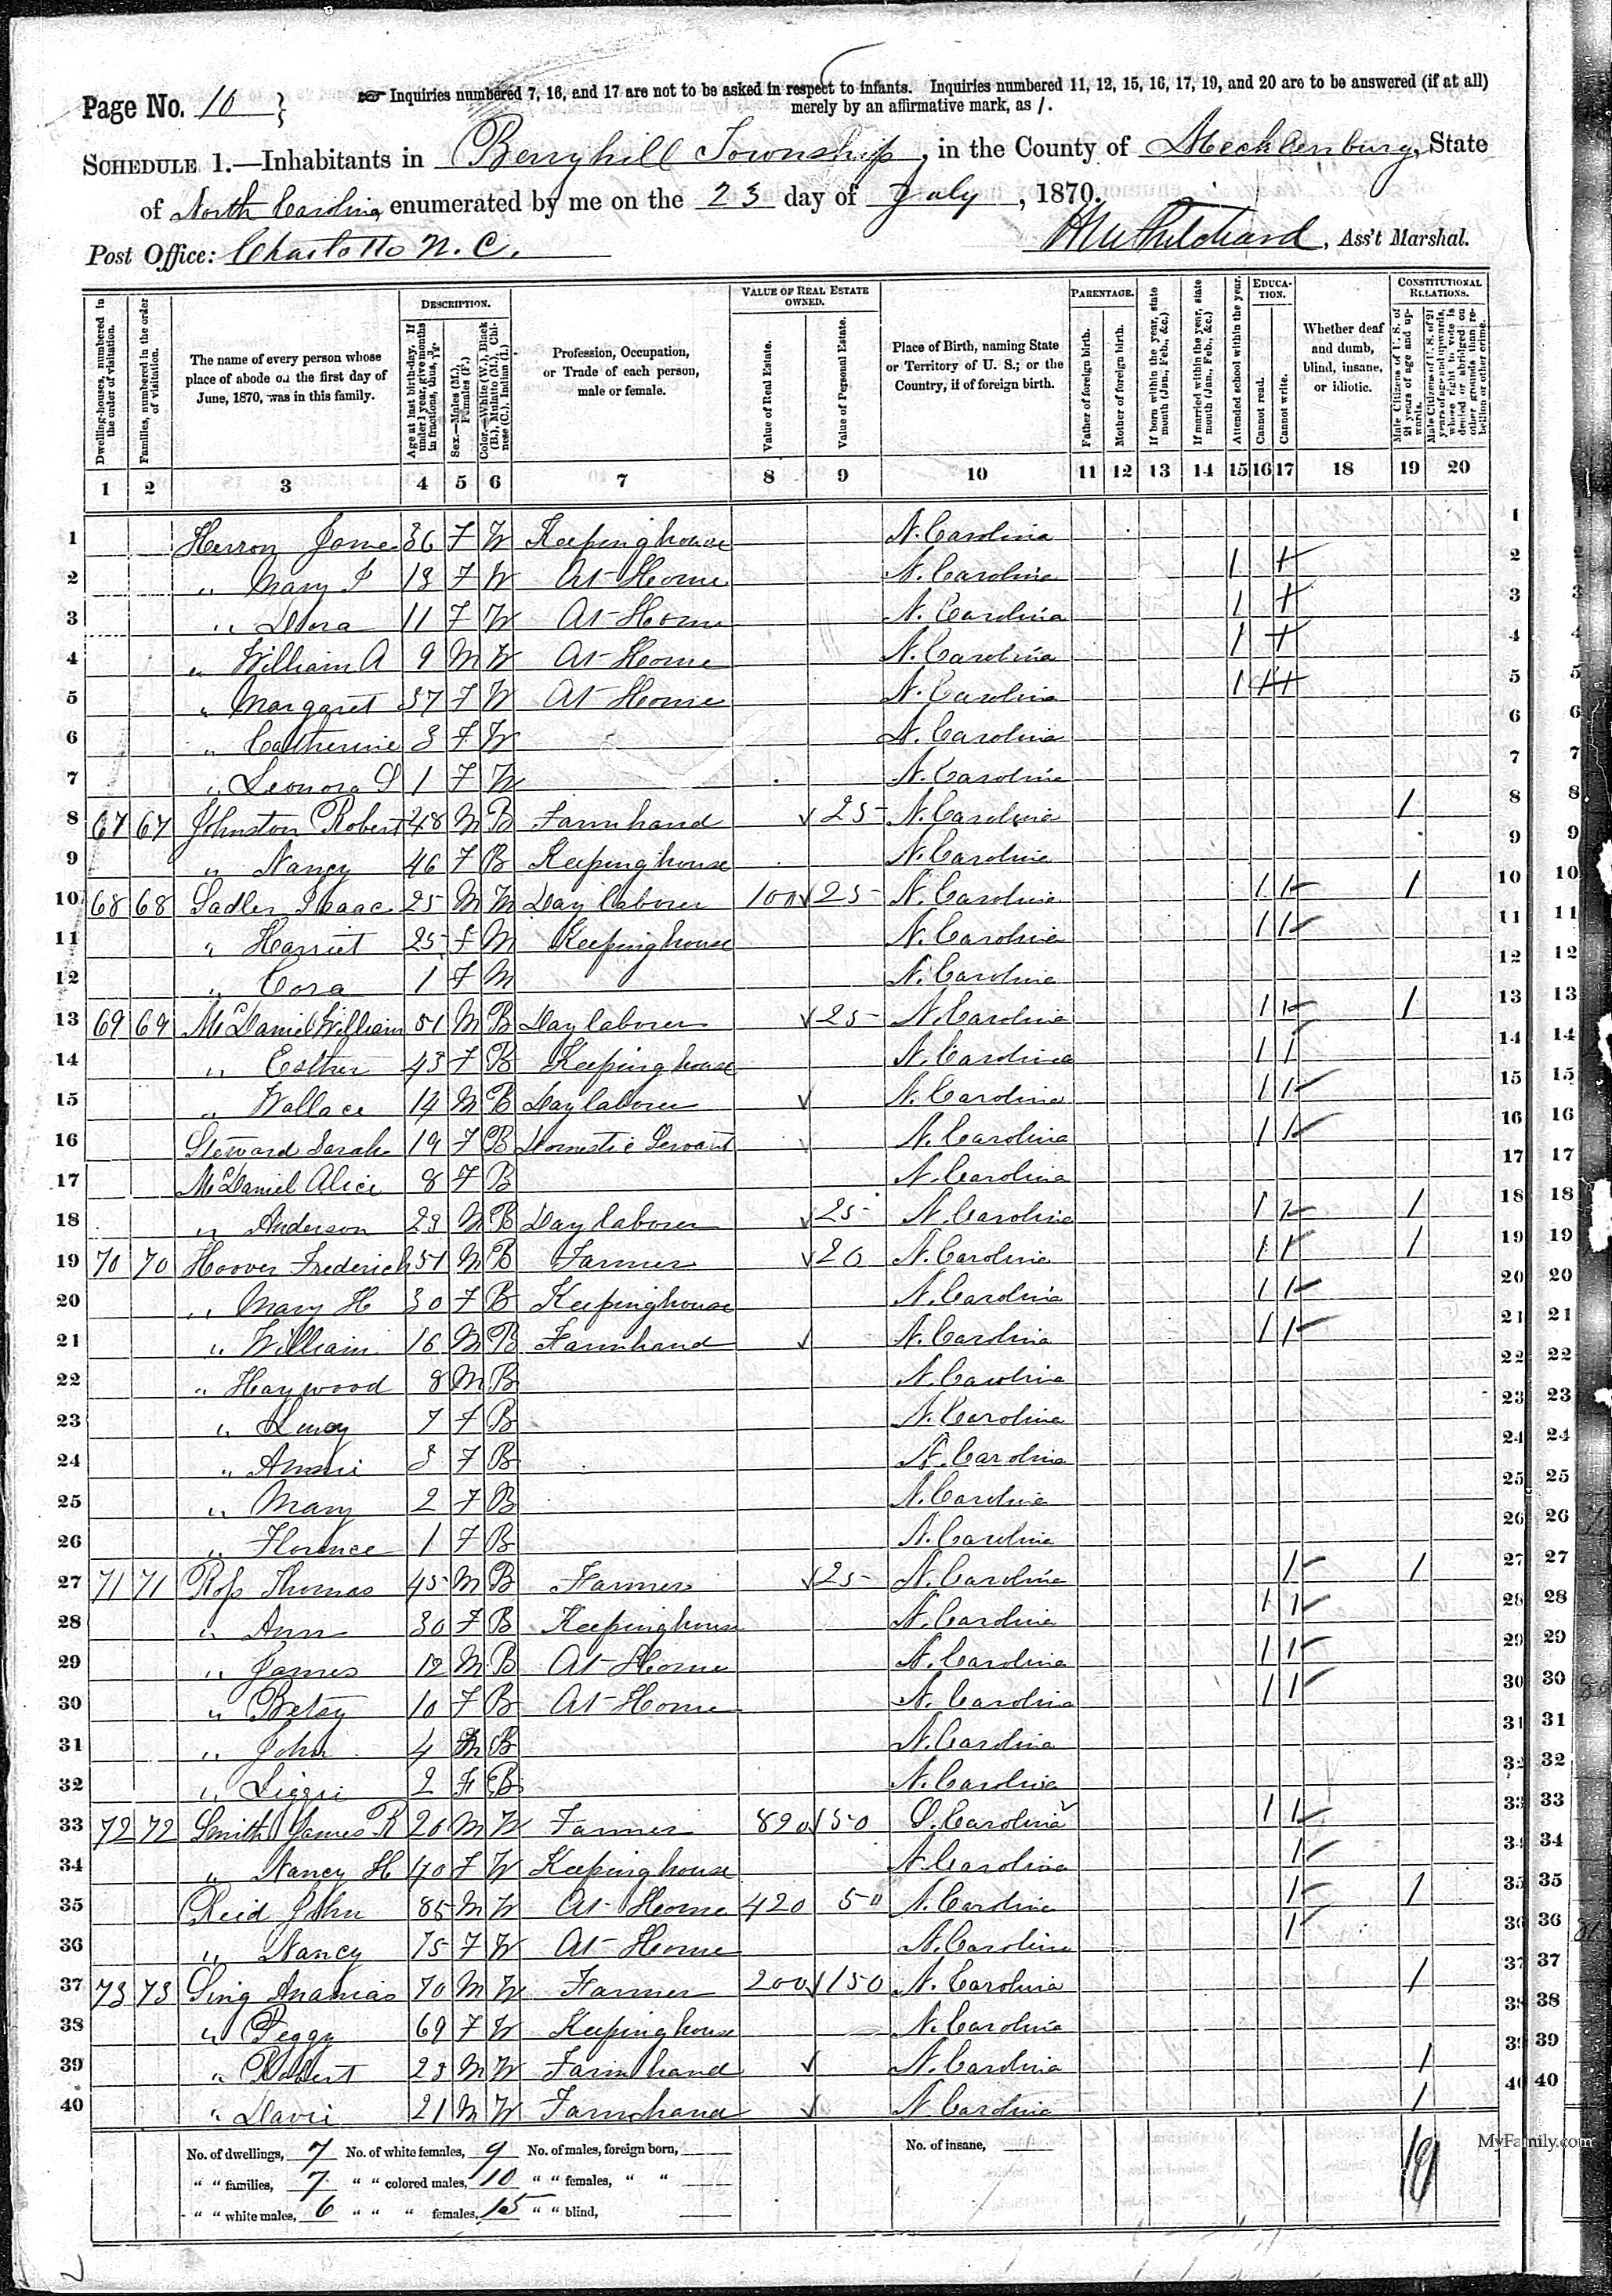 Page No. 10 } ☞ Inquiries numbered 7, 16, and 17 are not to be asked in respect to infants. Inquiries numbered 11, 12, 15, 16, 17, 19, and 20 are to be answered (if at all)
merely by an affirmative mark, as /.
SCHEDULE 1.—Inhabitants in Berryhill Township, in the County of Mecklenburg, State
of North Carolina, enumerated by me on the 23 day of July, 1870.
Post Office: Charlotte N. C. , Ass't Marshal.
DESCRIPTION. VALUE OF REAL ESTATE OWNED. PARENTAGE. EDUCATION. CONSTITUTIONAL RELATIONS.
Dwelling-houses, numbered in the order of visitation.
Families, numbered in the order of visitation.
The name of every person whose place of abode on the first day of June, 1870, was in this family.
Age at last birth-day. If under 1 year, give months in fractions, thus, 3/12.
Sex.—Males (M.), Females (F.)
Color.—White (W.), Black (B.), Mulatto (M.), Chinese (C.), Indian (I.)
Profession, Occupation, or Trade of each person, male or female.
Value of Real Estate.
Value of Personal Estate.
Place of Birth, naming State or Territory of U. S.; or the Country, if of foreign birth.
Father of foreign birth.
Mother of foreign birth.
If born within the year, state month (Jan., Feb., &c.)
If married within the year, state month (Jan., Feb., &c.)
Attended school within the year.
Cannot read.
Cannot write.
Whether deaf and dumb, blind, insane, or idiotic.
Male Citizens of U. S. of 21 years of age and upwards.
Male Citizens of U. S. of 21 years of age and upwards, whose right to vote is denied or abridged on other grounds than rebellion or other crime.
1 2 3 4 5 6 7 8 9 10 11 12 13 14 15 16 17 18 19 20
1 Herron Jane 36 F W Keeping house N. Carolina 1
2 " Mary J 13 F W At Home N. Carolina 1 + 2
3 " Dora 11 F W At Home N. Carolina 1 + 3
4 " William A 9 M W At Home N. Carolina 1 + 4
5 " Margaret 37 F W At Home N. Carolina 1 + + 5
6 " Catherine 3 F W N. Carolina 6
7 " Leonora S 1 F W N. Carolina 7
8 67 67 Johnston Robert 48 M B Farm hand ✓ 25 N. Carolina / 8
9 " Nancy 46 F B Keeping house N. Carolina 9
10 68 68 Sadler Isaac 25 M M Day laborer 100 ✓ 25 N. Carolina 1 1 / 10
11 " Harriet 25 F M Keeping house N. Carolina 1 1 11
12 " Cora 1 F M N. Carolina 12
13 69 69 McDaniel William 51 M B Day laborer ✓ 25 N. Carolina 1 1 / 13
14 " Esther 43 F B Keeping house N. Carolina 1 1 14
15 " Wallace 14 M B Day laborer ✓ N. Carolina 1 1 15
16 Steward Sarah 19 F B Domestic Servant N. Carolina 1 1 16
17 McDaniel Alice 8 F B N. Carolina 17
18 " Anderson 23 M B Day laborer ✓ 25 N. Carolina 1 1 / 18
19 70 70 Hoover Frederick 51 M B Farmer ✓ 20 N. Carolina 1 1 / 19
20 " Mary H 30 F B Keeping house N. Carolina 1 1 20
21 " William 16 M B Farm hand ✓ N. Carolina 1 1 21
22 " Haywood 8 M B N. Carolina 22
23 " Lucy 7 F B N. Carolina 23
24 " Annie 3 F B N. Carolina 24
25 " Mary 2 F B N. Carolina 25
26 " Florence 1 F B N. Carolina 26
27 71 71 Ross Thomas 45 M B Farmer ✓ 25 N. Carolina 1 / 27
28 " Ann 30 F B Keeping house N. Carolina 1 1 28
29 " James 12 M B At Home N. Carolina 1 1 29
30 " Betsy 10 F B At Home N. Carolina 1 1 30
31 " John 4 M B N. Carolina 31
32 " Lizzie 2 F B N. Carolina 32
33 72 72 Smith James R 26 M W Farmer 820 150 S. Carolina 1 1 33
34 " Nancy H 40 F W Keeping house N. Carolina 1 34
35 Reid John 85 M W At Home 420 50 N. Carolina 1 / 35
36 " Nancy 75 F W At Home N. Carolina 1 36
37 73 73 Sing Ananias 70 M W Farmer 200 ✓ 150 N. Carolina / 37
38 " Peggy 69 F W Keeping house N. Carolina 38
39 " Robert 23 M W Farm hand ✓ N. Carolina / 39
40 " Davie 21 M W Farm hand ✓ N. Carolina / 40
No. of dwellings, 7 No. of white females, 9 No. of males, foreign born, No. of insane,
" " families, 7 " " colored males, 10 " " females, " "
" " white males, 6 " " " females, 15 " " blind,
MyFamily.com